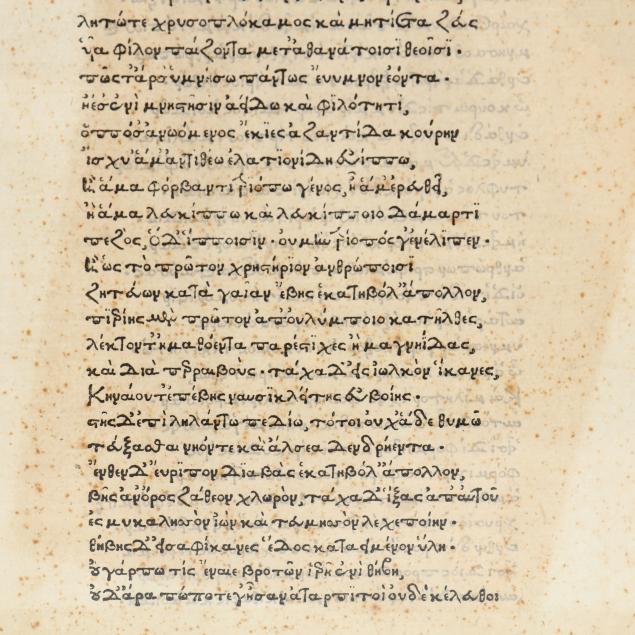 λητώτε χρυσοπλόκαμος καὶ μητίετα ζεύς
ὗα φίλον παίζοντα μετ' ἀθανάτοισι θεοῖσι·
πῶς τάρ σ' ὑμνήσω πάντως εὔυμνον ἐόντα·
ἠέ σ' ἐνὶ μνηστῆσιν ἀείδω καὶ φιλότητι,
ὅππόσ' ἀνωόμενος ἔκιες ἀζαντίδα κούρην
ἴσχυ' ἅμ' ἀντιθέω ἐλατιονίδη εὐίππω,
ἢ ἅμα φόρβαντι τριόπω γένος, ἢ ἅμ' ἐρευθεῖ,
ἢ ἅμα λευκίππω καὶ λευκίπποιο δάμαρτι
πεζός, ὁ δ' ἵπποισιν· οὐ μὴν τρίοπός γ' ἐνέλιπεν·
ἢ ὡς τὸ πρῶτον χρηστήριον ἀνθρώποισι
ζητεύων κατὰ γαῖαν ἔβης ἑκατηβόλ' ἄπολλον,
πιερίης μὲν πρῶτον ἀπ' οὐλύμποιο κατῆλθες,
λεκτόν τ' ἠμαθόεντα παρέστιχες ἢ μαγνηΐδας,
καὶ διὰ περραιβούς· τάχα δ' εἰς ἰωλκὸν ἵκανες,
Κηναίου τ' ἐπέβης ναυσικλειτῆς εὐβοίης·
στῆς δ' ἐπὶ ληλάντω πεδίω, τό τοι οὐχ ἅδε θυμῶ
τεύξασθαι νηόν τε καὶ ἄλσεα δενδρήεντα·
ἔνθεν δ' εὔριπον διαβὰς ἑκατηβόλ' ἄπολλον,
βῆς ἀν' ὄρος ζάθεον χλωρόν, τάχα δ' ἷξας ἀπ' αὐτοῦ
ἐς μυκαλησὸν ἰὼν καὶ τευμησὸν λεχεποίην·
θήβης δ' εἰσαφίκανες ἕδος καταειμένον ὕλη·
οὐ γάρ πω τίς ἔναιε βροτῶν ἱερῆ ἐνὶ θήβη,
οὐδ' ἄρα πώποτέ γ' ἦσαν ἀταρπιτοὶ οὐδὲ κέλευθοι